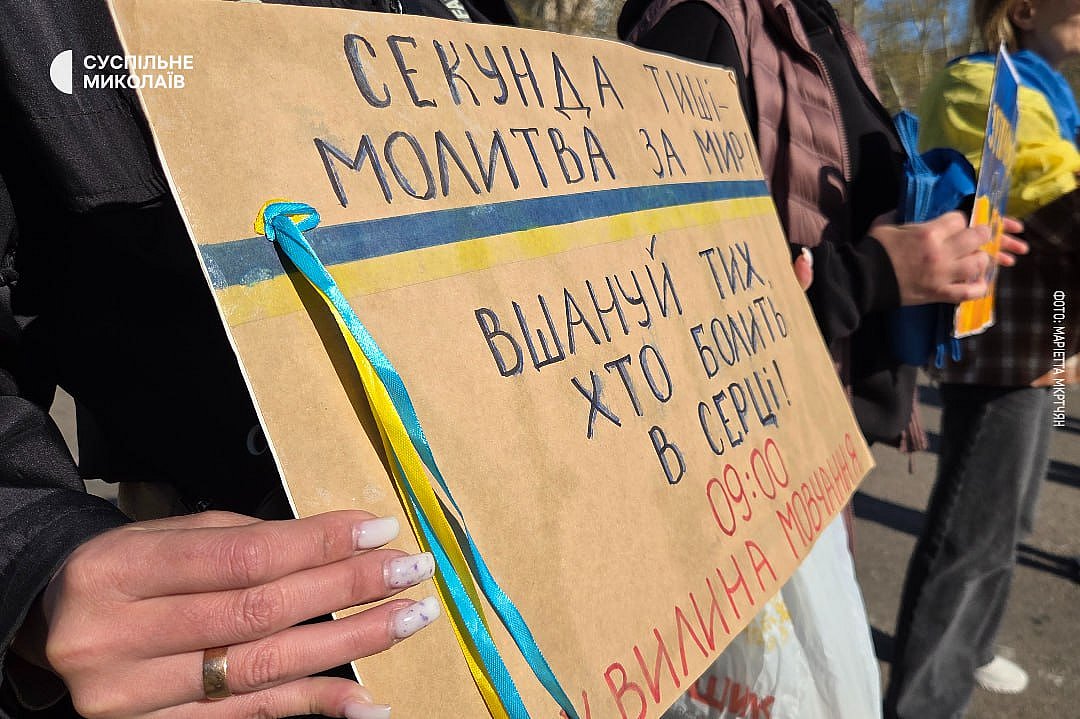 СУСПІЛЬНЕ
МИКОЛАЇВ
СЕКУНДА ТИШІ-
МОЛИТВА ЗА МИР!
ВШАНУЙ ТИХ,
ХТО БОЛИТЬ
В СЕРЦІ!
09:00
ХВИЛИНА МОВЧАННЯ
ФОТО: МАРІЕТТА МКРТЧЯН